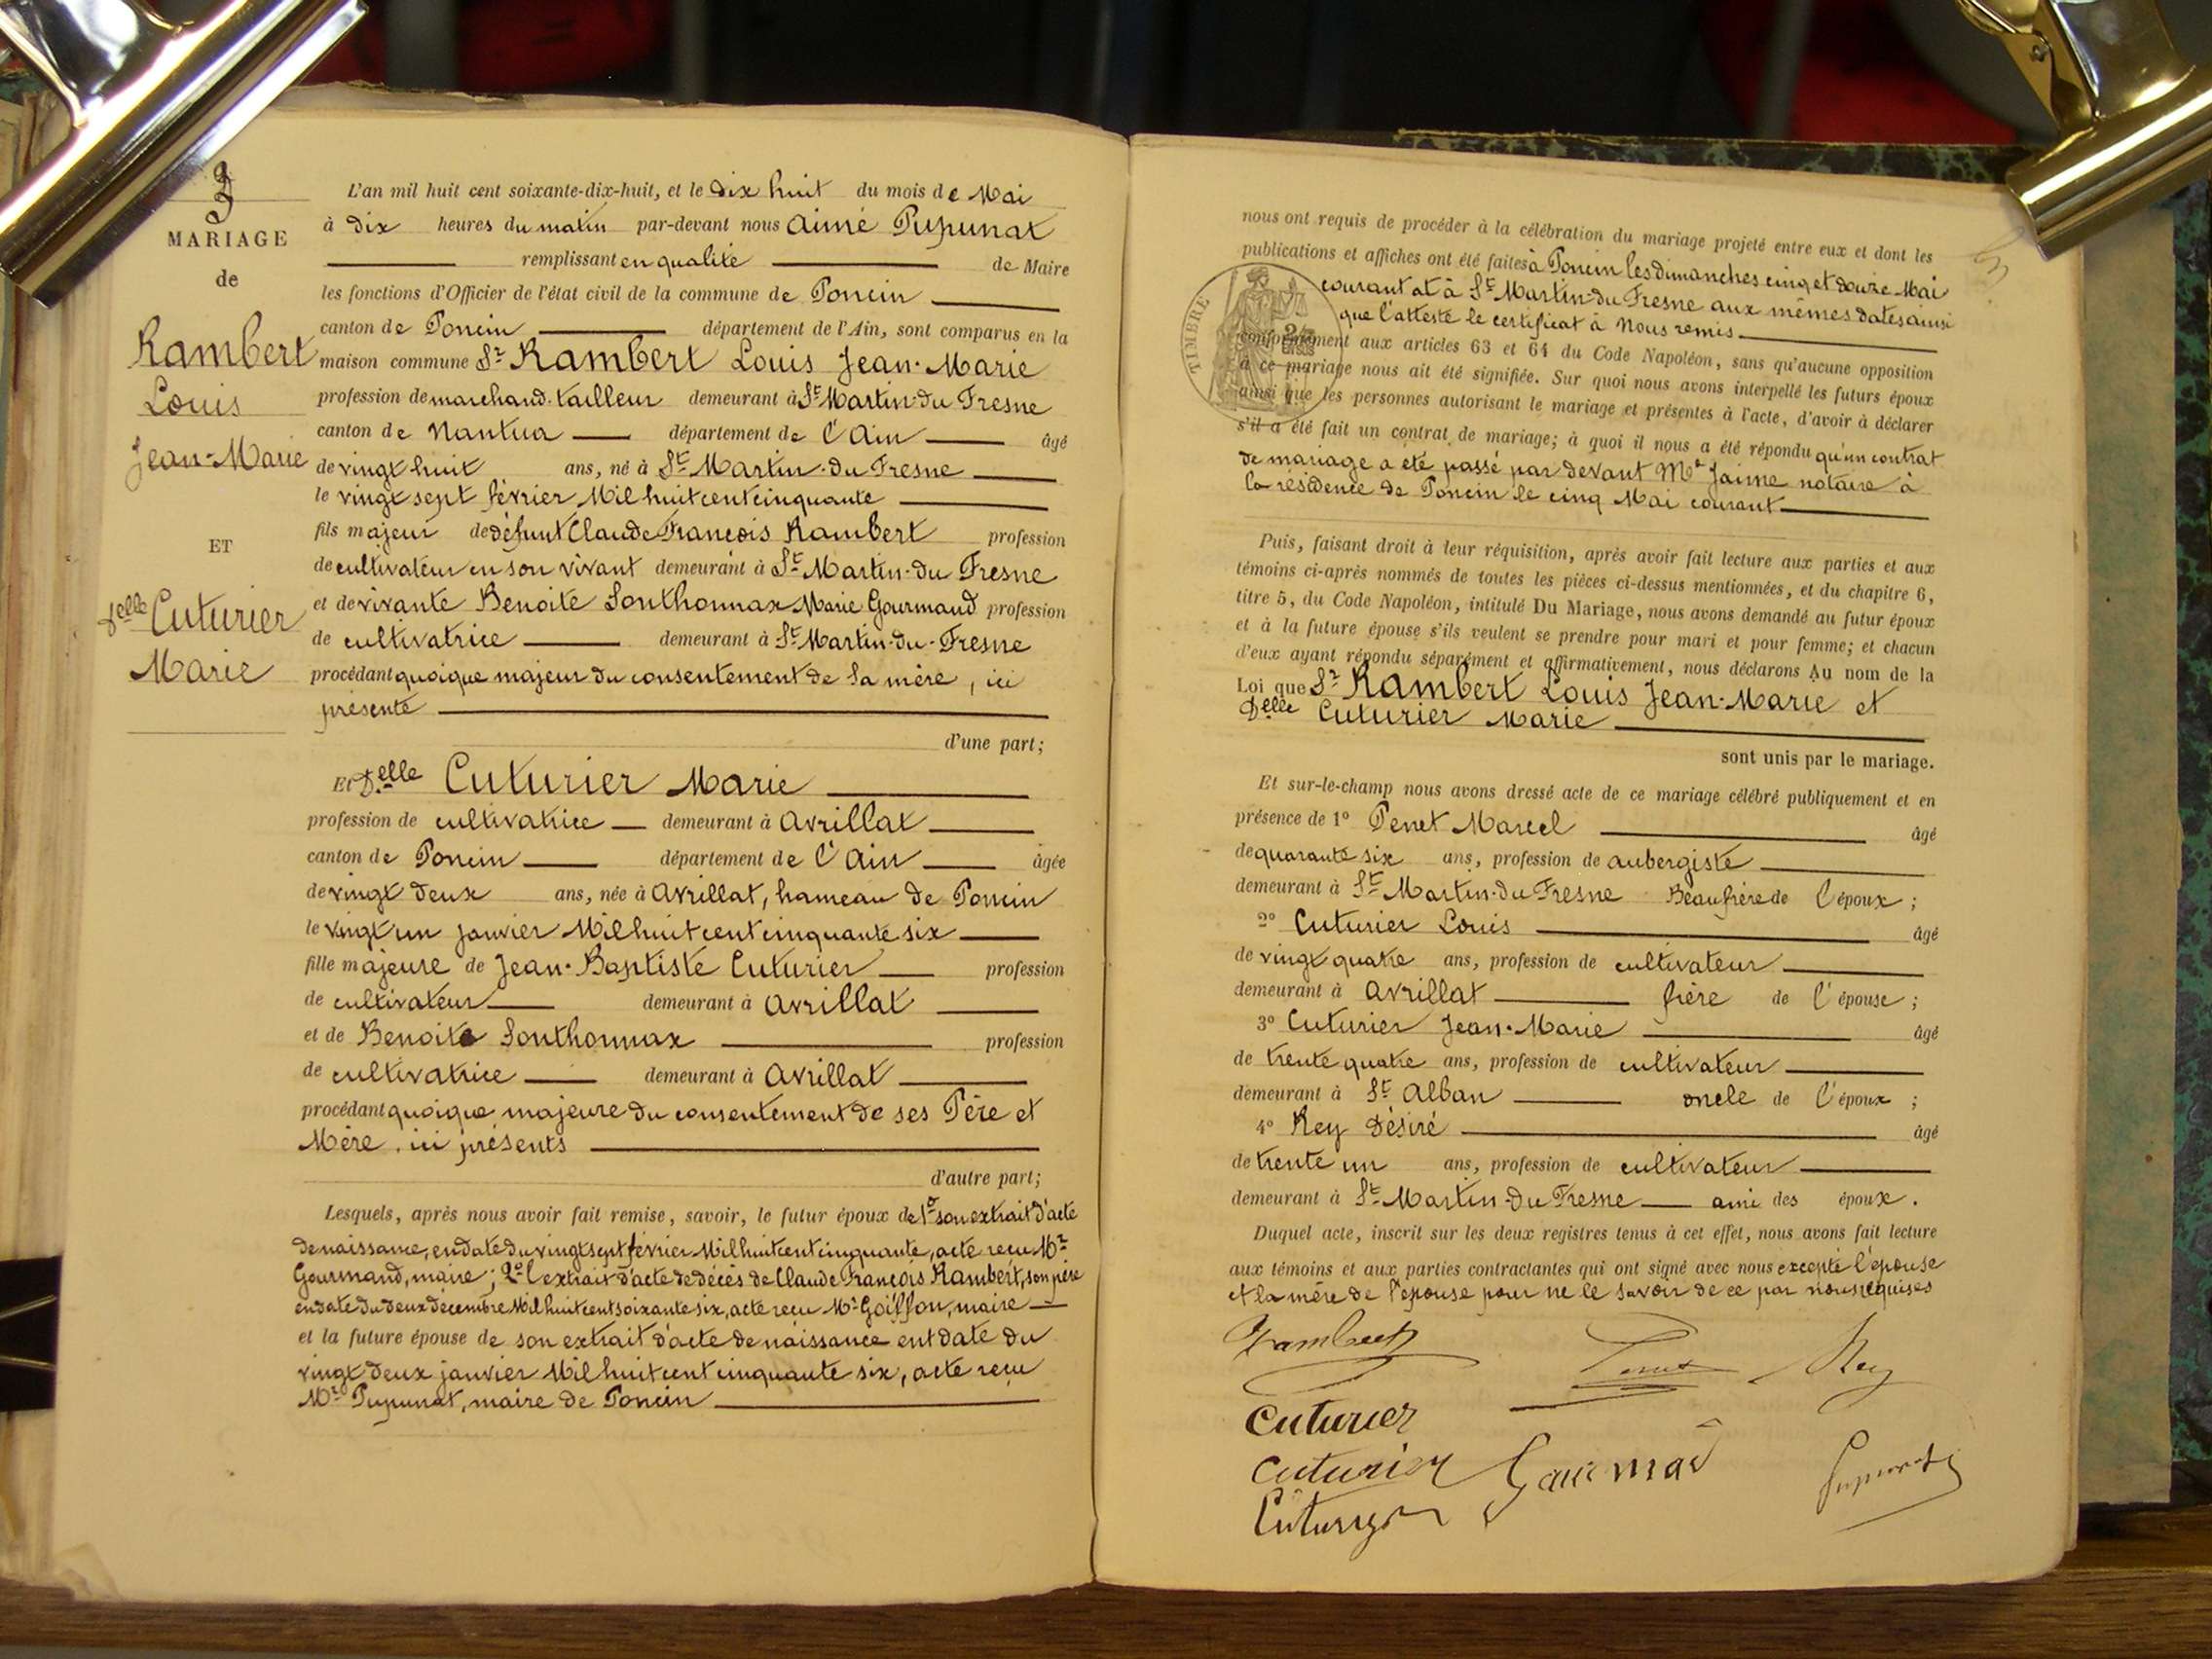 3
MARIAGE
de
Rambert
Louis
Jean-Marie
ET
Delle Cuturier
Marie
L'an mil huit cent soixante-dix-huit, et le dix huit du mois de Mai
à dix heures du matin par-devant nous Aimé Pupunat
remplissant en qualité de Maire
les fonctions d'Officier de l'état civil de la commune de Poncin
canton de Poncin département de l'Ain, sont comparus en la
maison commune Sr Rambert Louis Jean-Marie
profession de marchand-tailleur demeurant à St Martin-du Fresne
canton de Nantua département de l'Ain âgé
de vingt huit ans, né à St Martin-du Fresne
le vingt sept février Mil huit cent cinquante
fils majeur de défunt Claude François Rambert profession
de cultivateur en son vivant demeurant à St Martin-du Fresne
et de vivante Benoite Sonthonnax Marie Gourmand profession
de cultivatrice demeurant à St Martin-du-Fresne
procédant quoique majeur du consentement de sa mère, ici
présente
d'une part;
Et Delle Cuturier Marie
profession de cultivatrice demeurant à Avrillat
canton de Poncin département de l'Ain âgée
de vingt deux ans, née à Avrillat, hameau de Poncin
le vingt un janvier Mil huit cent cinquante six
fille majeure de Jean-Baptiste Cuturier profession
de cultivateur demeurant à Avrillat
et de Benoite Sonthonnax profession
de cultivatrice demeurant à Avrillat
procédant quoique majeure du consentement de ses Père et
Mère, ici présents
d'autre part;
Lesquels, après nous avoir fait remise, savoir, le futur époux de 1o son extrait d'acte
de naissance, en date du vingt sept février Mil huit cent cinquante, acte reçu Mr
Gourmand, maire; 2o l'extrait d'acte de décès de Claude François Rambert, son père
en date du deux décembre Mil huit cent soixante six, acte reçu Mr Goiffon, maire
et la future épouse de son extrait d'acte de naissance ent date du
vingt deux janvier Mil huit cent cinquante six, acte reçu
Mr Pupunat, maire de Poncin
nous ont requis de procéder à la célébration du mariage projeté entre eux et dont les
publications et affiches ont été faites à Poncin les dimanches cinq et douze Mai
courant at à St Martin-du Fresne aux mêmes dates ainsi
que l'atteste le certificat à Nous remis
TIMBRE
conformément aux articles 63 et 64 du Code Napoléon, sans qu'aucune opposition
à ce mariage nous ait été signifiée. Sur quoi nous avons interpellé les futurs époux
ainsi que les personnes autorisant le mariage et présentes à l'acte, d'avoir à déclarer
s'il a été fait un contrat de mariage; à quoi il nous a été répondu qu'un contrat
de mariage a été passé par devant Me Jaime notaire à
la résidence de Poncin le cinq Mai courant
Puis, faisant droit à leur réquisition, après avoir fait lecture aux parties et aux
témoins ci-après nommés de toutes les pièces ci-dessus mentionnées, et du chapitre 6,
titre 5, du Code Napoléon, intitulé Du Mariage, nous avons demandé au futur époux
et à la future épouse s'ils veulent se prendre pour mari et pour femme; et chacun
d'eux ayant répondu séparément et affirmativement, nous déclarons Au nom de la
Loi que Sr Rambert Louis Jean-Marie et
Delle Cuturier Marie
sont unis par le mariage.
Et sur-le-champ nous avons dressé acte de ce mariage célébré publiquement et en
présence de 1o Penet Marcel âgé
de quarante six ans, profession de aubergiste
demeurant à St Martin-du Fresne Beaufrère de l'époux;
2o Cuturier Louis âgé
de vingt quatre ans, profession de cultivateur
demeurant à Avrillat frère de l'épouse;
3o Cuturier Jean-Marie âgé
de trente quatre ans, profession de cultivateur
demeurant à St Alban oncle de l'époux;
4o Rey Désiré âgé
de trente un ans, profession de cultivateur
demeurant à St Martin-du Fresne ami des époux.
Duquel acte, inscrit sur les deux registres tenus à cet effet, nous avons fait lecture
aux témoins et aux parties contractantes qui ont signé avec nous excepté l'épouse
et la mère de l'épouse pour ne le savoir de ce par nous requises
Rambert Penet Rey
Cuturier
Cuturier Gourmad Pupunat
Cuturier